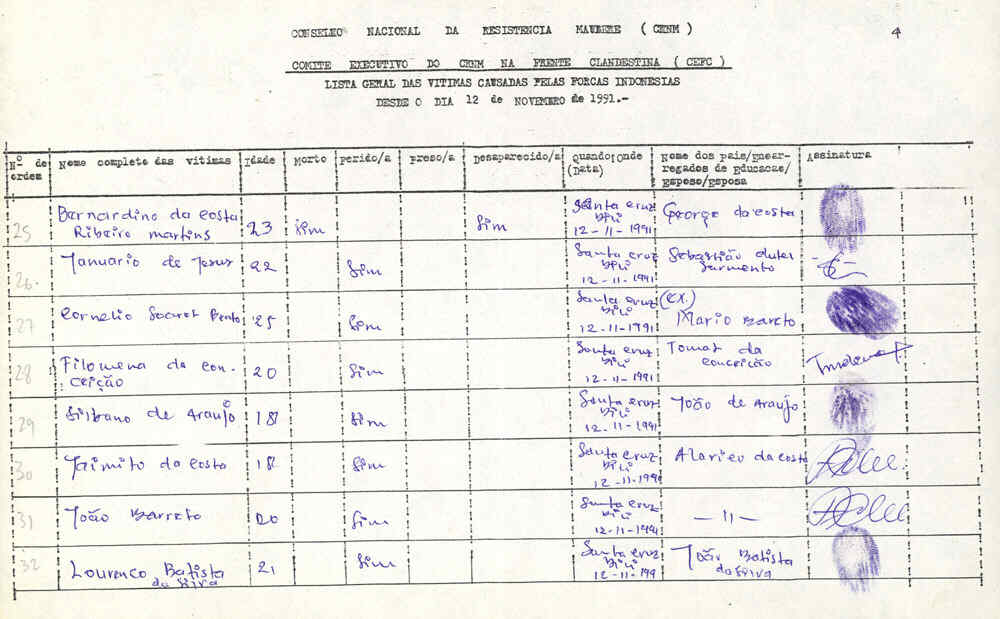 CONSELHO NACIONAL DA RESISTENCIA MAUBERE ( CRNM )
4
COMITE EXECUTIVO DO CRNM NA FRENTE CLANDESTINA ( CEFC )
LISTA GERAL DAS VITIMAS CAUSADAS PELAS FORCAS INDONESIAS
DESDE O DIA 12 de NOVEMBRO de 1991.-
Nº de ordem Nome completo das vitimas Idade Morto Ferido/a Preso/a Desaparecido/a Quando/Onde (Data) Nome dos pais/Encar-regados de Educacao/Esposo/Esposa Assinatura
25 Bernardino da Costa Ribeiro Martins 23 Sim Sim Santa Cruz Dili 12-11-1991 George da Costa
26. Januario de Jesus 22 Sim Santa Cruz Dili 12-11-1991 Sebastião Sarmento
27 Cornelio 25 Sim Santa Cruz Dili 12-11-1991 (EX.) Mario Bareto
28 Filomena da Con-ceição 20 Sim Santa Cruz Dili 12-11-1991 Tomas da Conceicão
29 Silbano de Araujo 18 Sim Santa Cruz Dili 12-11-1991 João de Araujo
30 Jaimito da Costa 18 Sim Santa Cruz Dili 12-11-1991 da Costa
31 João Barreto 20 Sim Santa Cruz Dili 12-11-1991 — 11 —
32 Lourenco Batista da Silva 21 Sim Santa Cruz Dili 12-11-199 João Batista da Silva